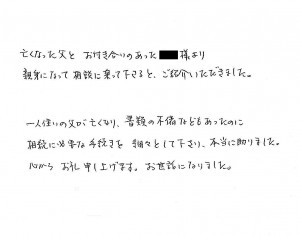 亡くなった父と お付き合いのあった 様より
親身になって相談に乗って下さると、ご紹介いただきました。
一人住いの父が亡くなり、書類の不備などもあったのに
相続に必要な手続きを 朗々として下さい、本当に助りました。
心から お礼申し上げます。お世話になりました。